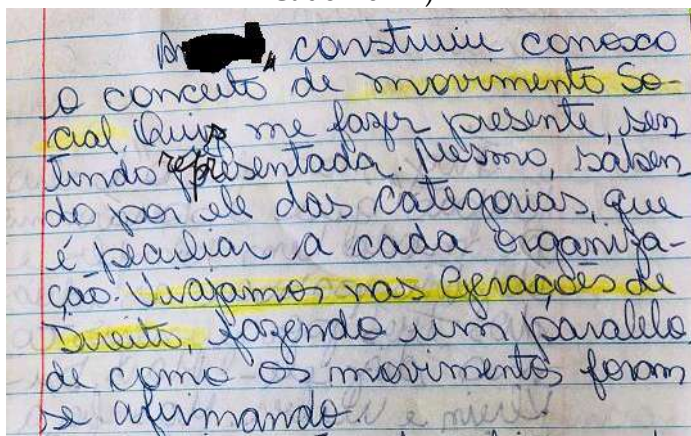 construiu conosco
o conceito de movimento So-
cial. Quiz me fazer presente, sen
tindo representada. Mesmo, saben
do por ele das categorias, que
é peculiar a cada organiza-
ção. Viajamos nas Gerações de
Direito, fazendo um paralelo
de como os movimentos foram
se afirmando.